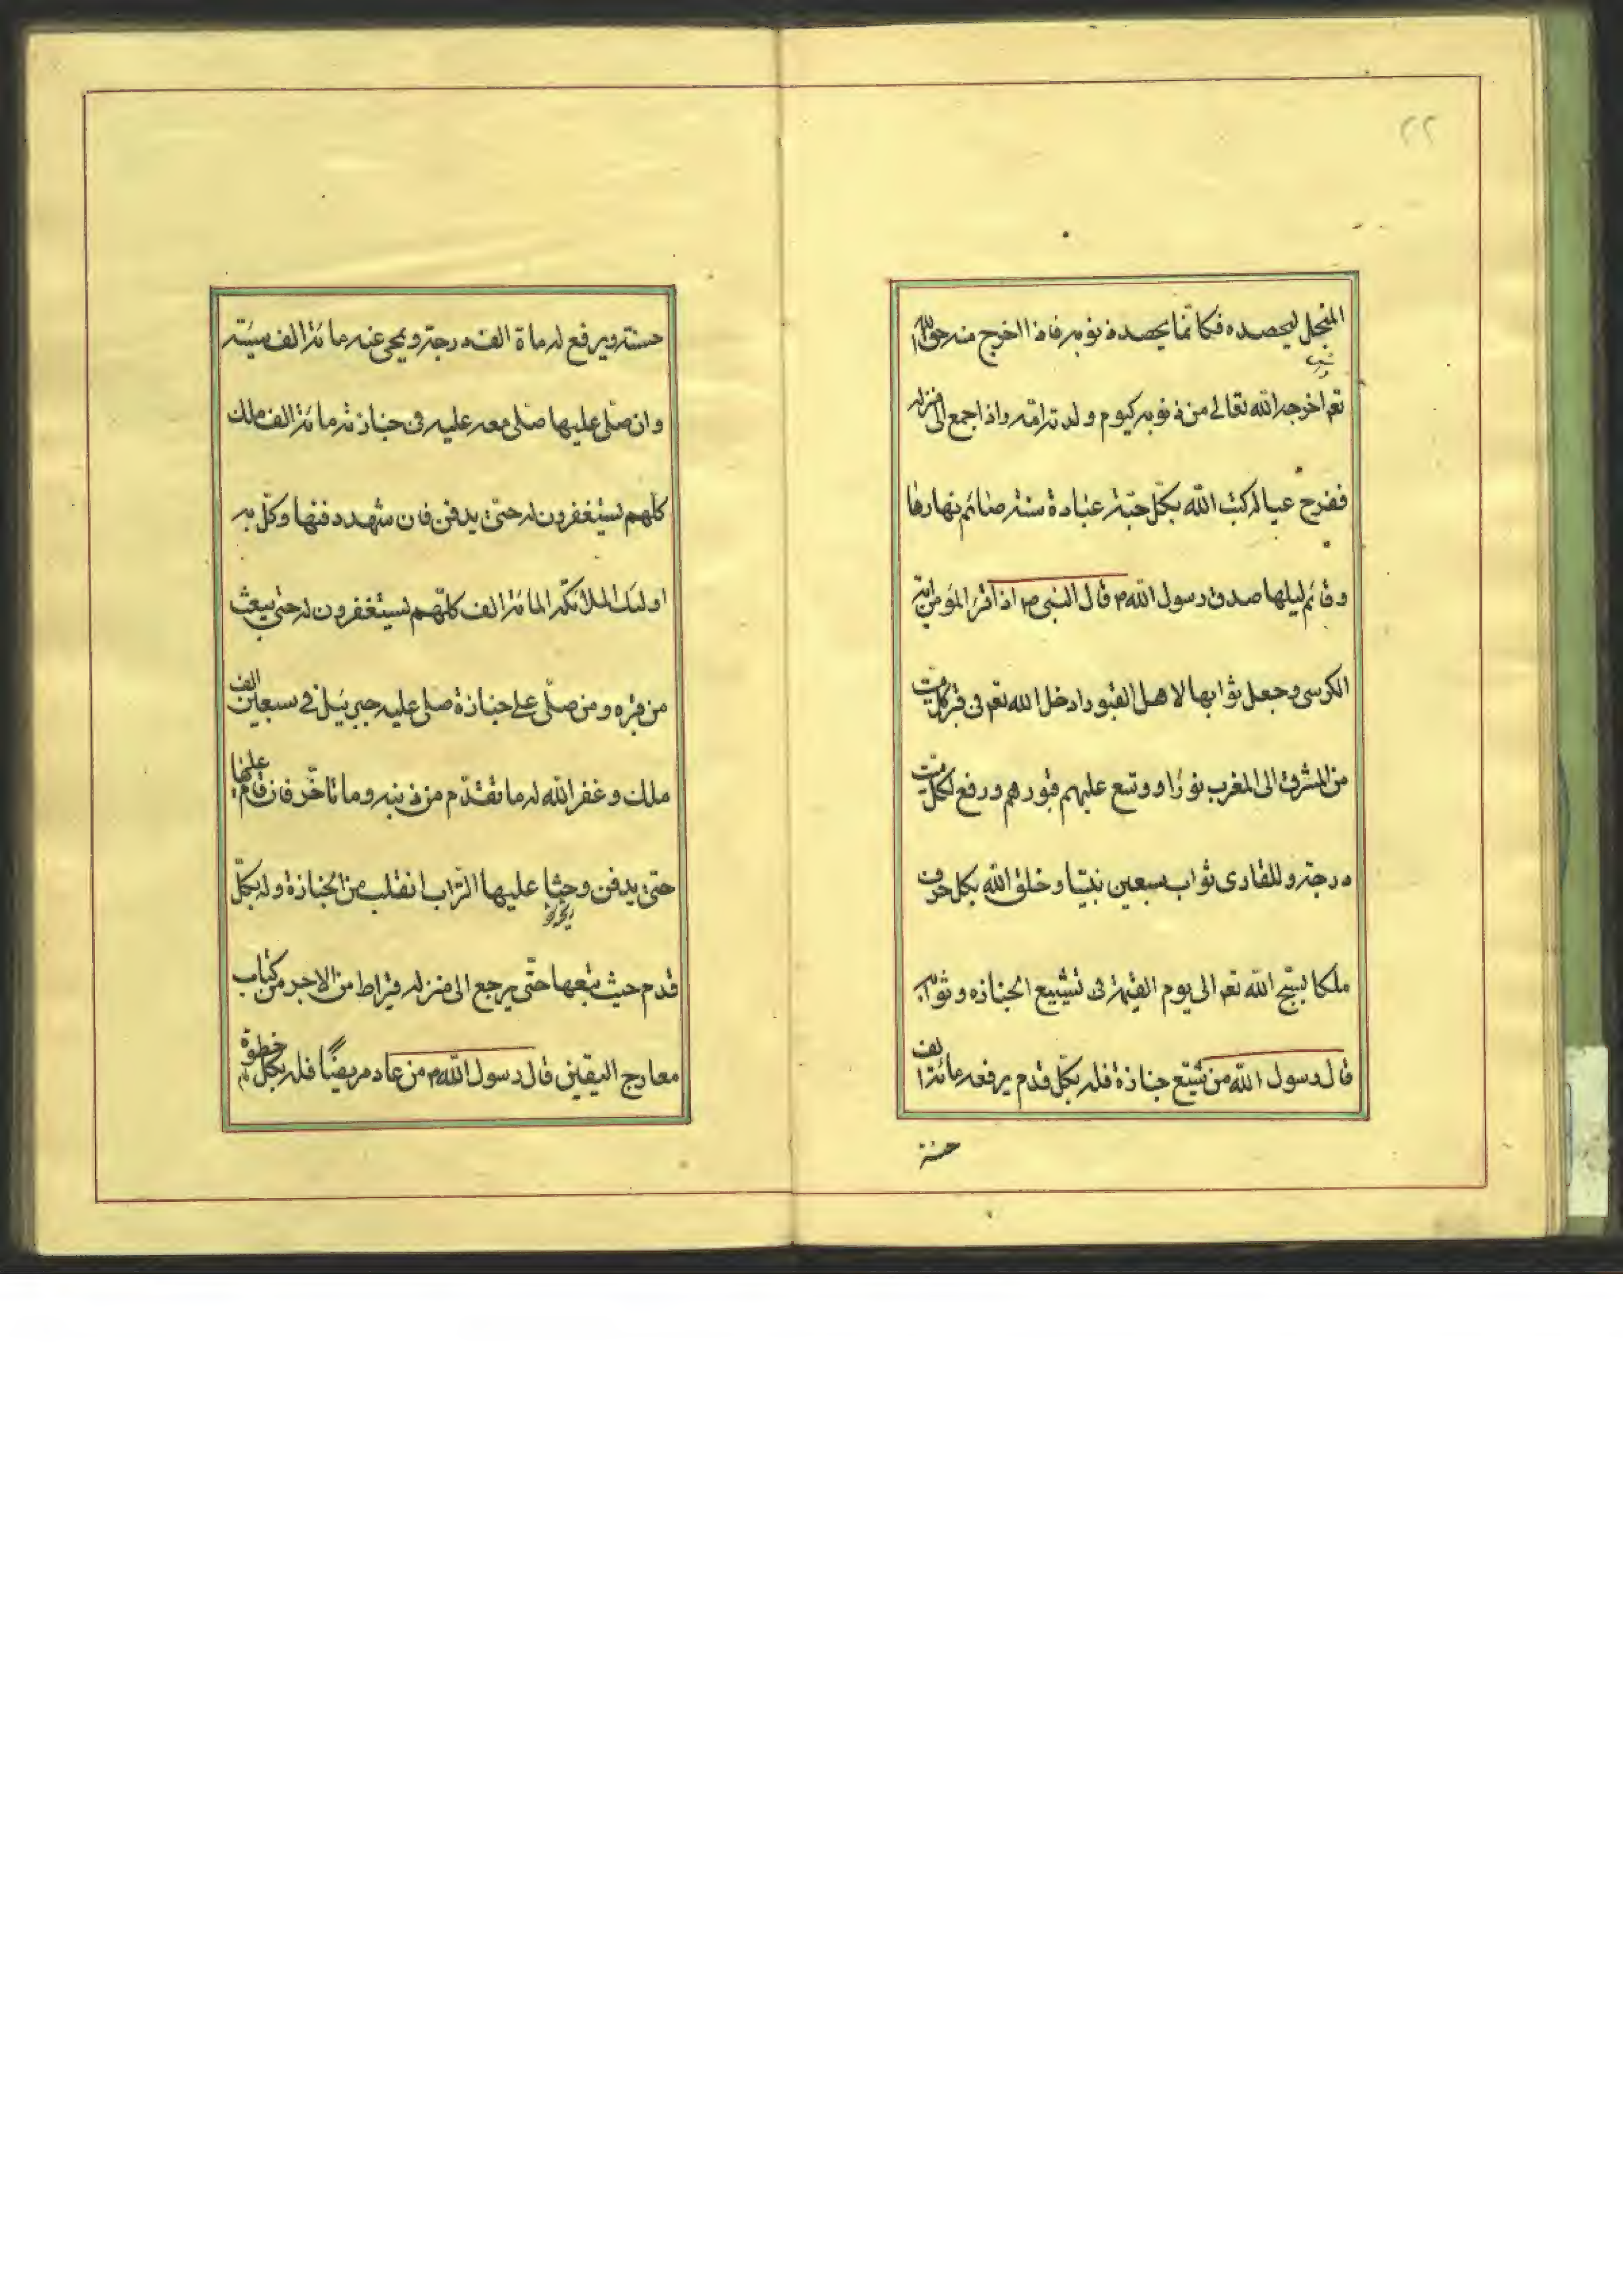 ٢٢
المنجل ليحصده فكانمّا يحصد ذنوبه فاذا اخرج منه حق الله
تعم اخرجه الله تعالى من ذنوبه كيوم ولدته امّه واذا جمع الى منزله
ففرح عياله كتب الله بكلّ حبّة عبادة سنة صائم نهارها
وقائم ليلها صدق رسول الله م قال النبى ص اذا قرء المؤمن اية
الكرسى وجعل ثوابها لاهل القبور ادخل الله تعم فى قبر كل ميّت
من المشرق الى المغرب نورًا ووسّع عليهم قبورهم ورفع لكل ميّت
درجة وللقارى ثواب سبعين نبيّا وخلق الله بكل حرف
ملكا يسبّح الله تعم الى يوم القيمة فى تشييع الجنازه وثوابه
قال رسول الله من شيّع جنازة فله بكلّ قدم يرفعه مائة الف
حسنة
حسنة ويرفع له ماة الف درجة ويمحى عنه مائة الف سيّئة
وان صلّى عليها صلّى معه عليه فى جنازته مائة الف ملك
كلّهم يستغفرون له حتّى يدفن فان شهد دفنها وكّل به
اولئك الملائكة المائة الف كلّهم يستغفرون له حتى يبعث
من قبره ومن صلّى على جنازة صلى عليه جبرئيل فى سبعين الف
ملك وغفر الله له ما تقدّم من ذنبه وما تاخّر فان قام عليها
حتى يدفن وحثا عليها التراب انقلب من الجنازة وله بكلّ
قدم حيث تبعها حتّى يرجع الى منزله قيراط من الاجر من كتاب
معارج اليقين قال رسول الله م من عاد مريضًا فله بكلّ خطوة